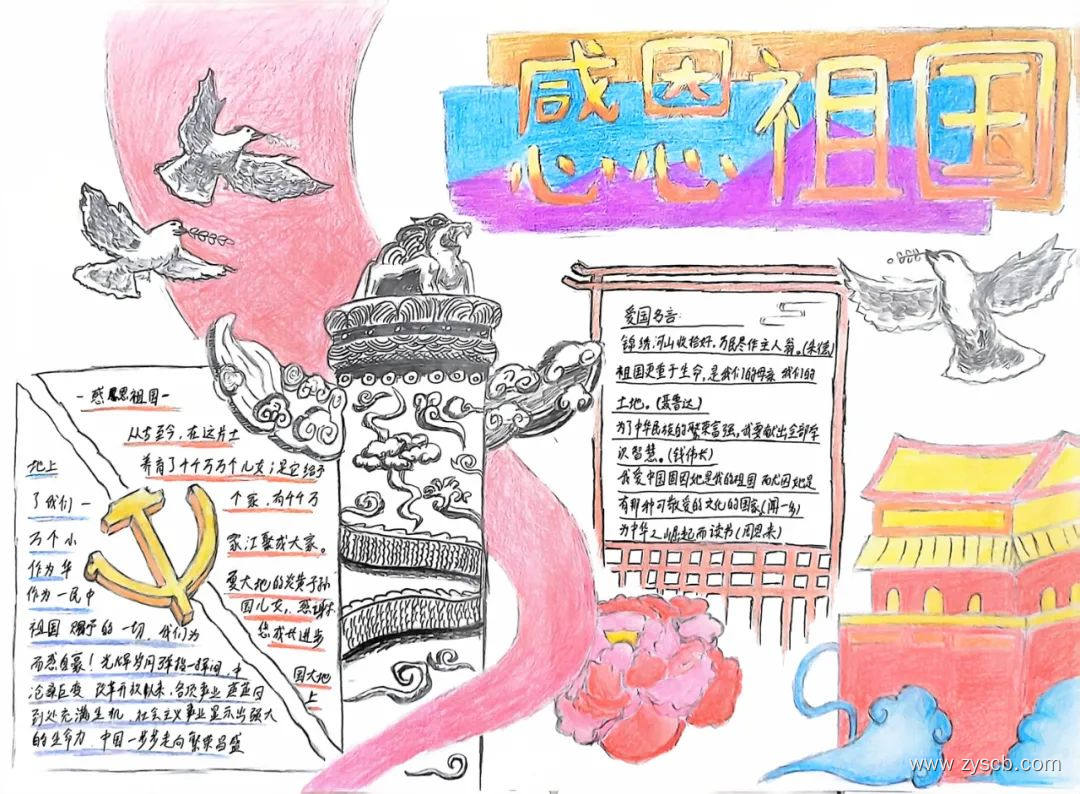 感恩祖国
爱国名言:
锦绣河山收拾好,万民尽作主人翁。(朱德)
祖国更重于生命,是我们的母亲 我们的
土地。(聂鲁达)
为了中华民族的繁荣富强,我要献出全部学
识智慧。(钱伟长)
我爱中国固因她是我的祖国 而尤因她是
有那种可敬爱的文化的国家,(闻一多)
为中华之崛起而读书(周恩来)
-感恩祖国-
从古至今,在这片土
地上 养育了千千万万个儿女;是它给予
了我们一 个家,而千千万
万个小 家汇聚成大家。
作为华 夏大地的炎黄子孙
作为一民中 国儿女,感谢
祖国 赐予的一切,我们为 您或共进步
而感自豪!光辉岁月弹指一挥间,中 国大地
沧桑巨变 改革开放以来,各项事业 上
到处充满生机,社会主义事业显示出强大
的生命力 中国一步步走向繁荣昌盛
www.zyscb.com